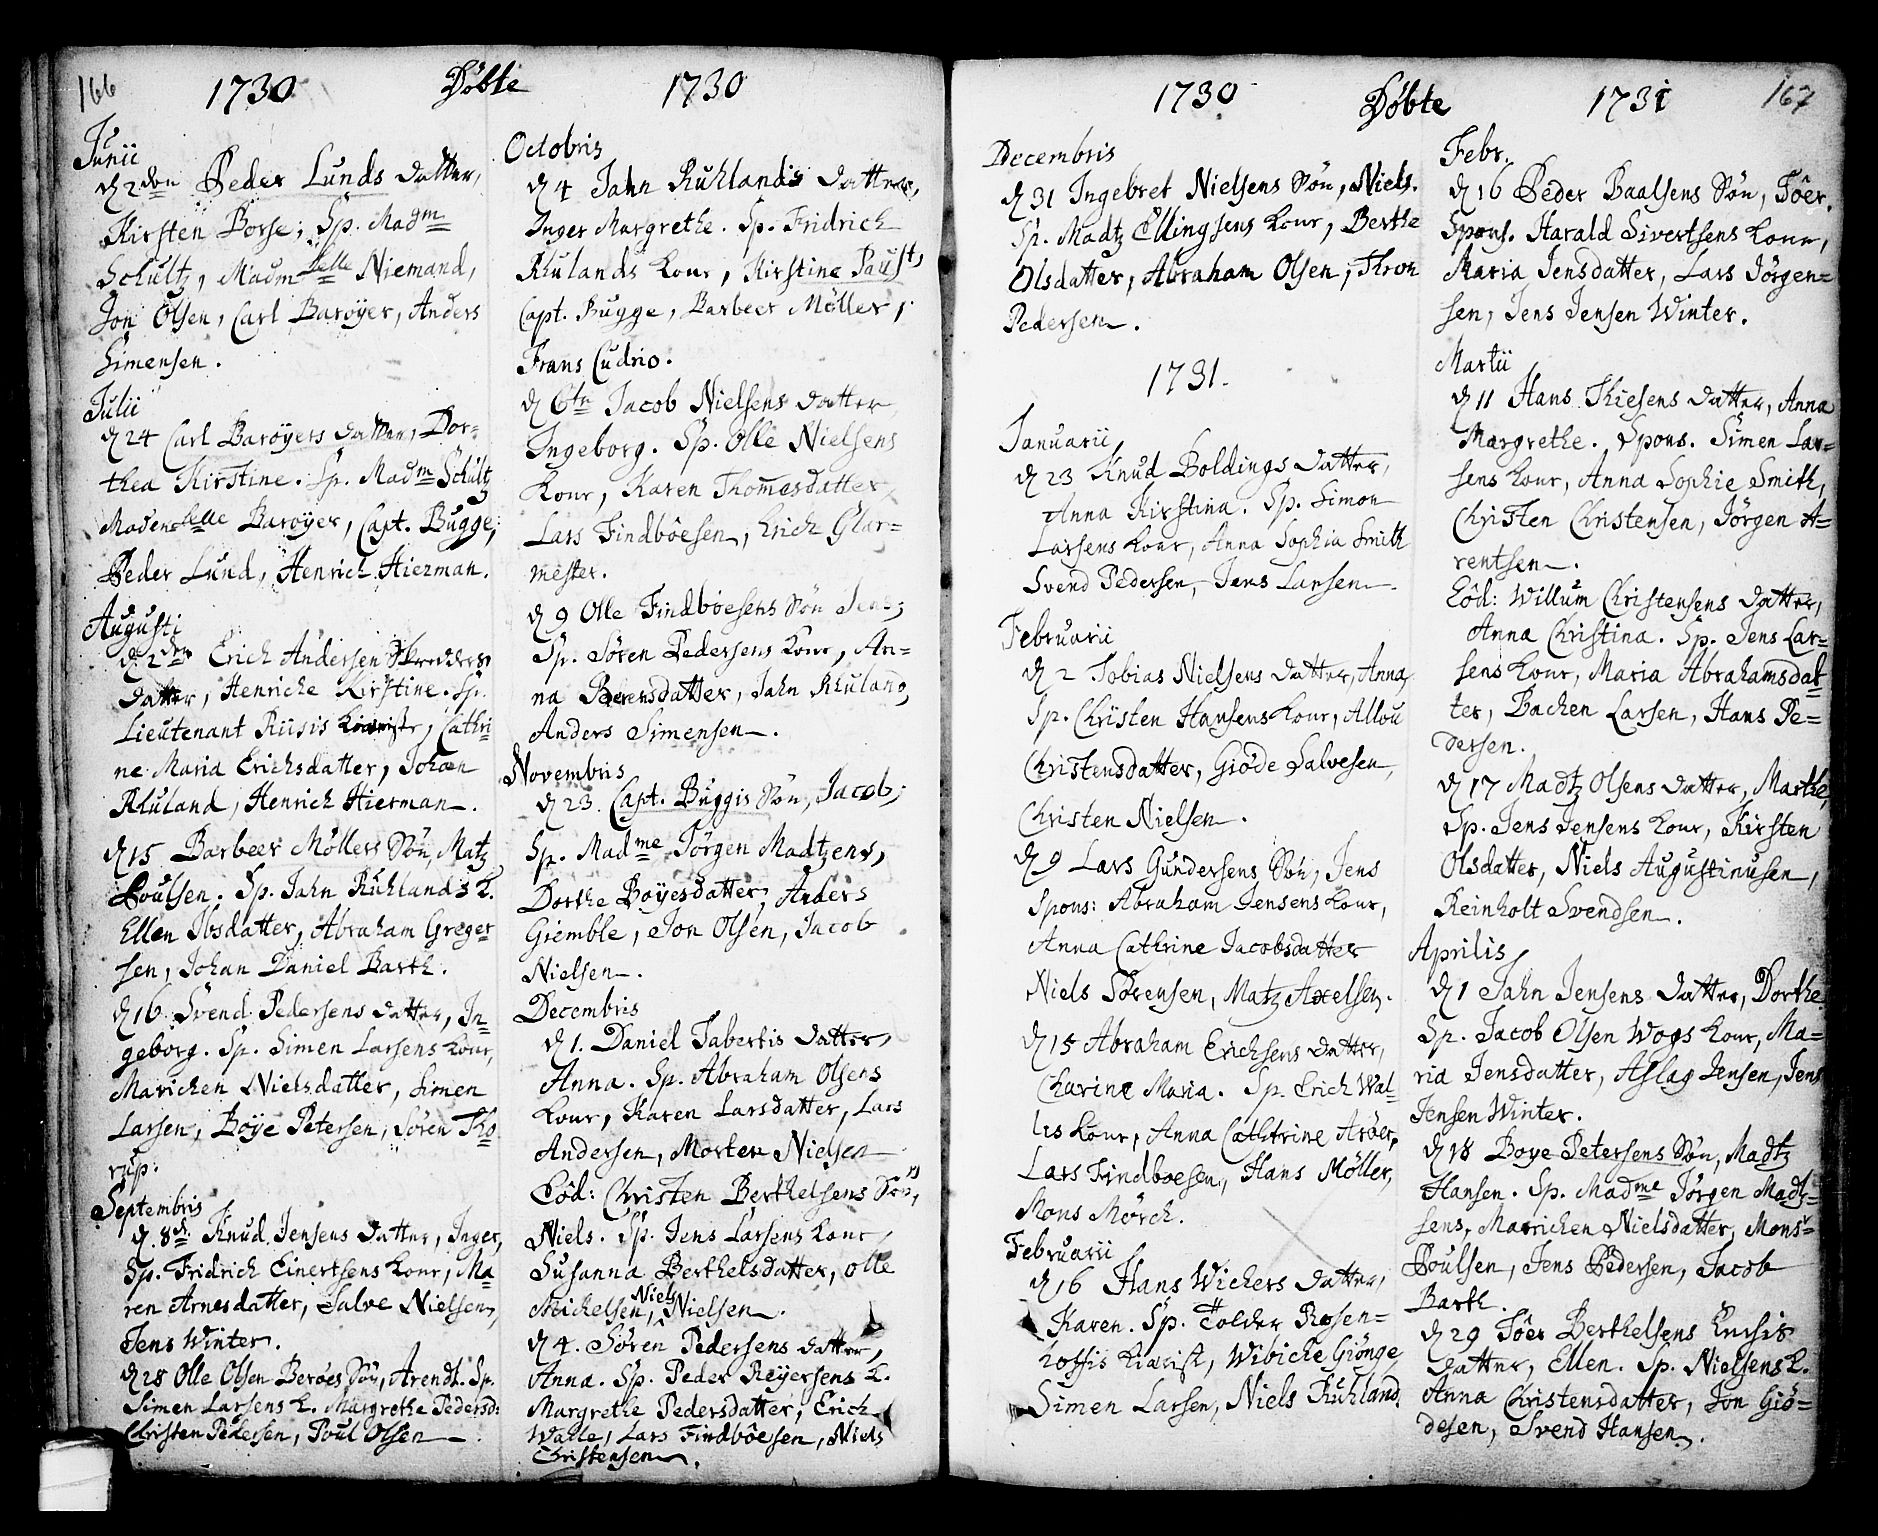 166
1730 Döbte 1730
Junii
d 2den Peder Lunds Datter,
Kirsten Borse; Sp. Madm
Schultz, Madmselle Niemand,
Jon Olsen, Carl Baröyer, Anders
Simensen.
Julii
d 24 Carl Baröyers Datter, Dor-
thea Kirstine. Sp. Madm Schultz
Madenselle Baröyer, Capt. Bugge,
Peder Lund, Henrich Hierman.
Augusti
d. 2den Erich Andersen Skredders
Datter, Henriche Kirstine. Sp.
Lieutenant Riisis, Cathri=
ne Maria Erichsdatter, Johan
Rhuland, Henrich Hierman.
d 15 Barbeer Möllers Sön, Matz
Poulsen. Sp. Jahn Ruhlands K.
Ellen Ibsdatter, Abraham Greger=
sen, Johan Daniel Barth.
d 16 Svend Pedersens Datter, In=
geborg. Sp. Simen Larsens Kour,
Marichen Nielsdatter, Simen
Larsen, Böye Petersen, Sören Tho=
rup.
Septembris
d. 8de Knud Jensens Datter, Inger,
Sp. Fridrich Einertsens Kour, Ma=
ren Arnesdatter, Salve Nielsen,
Jens Winter.
d 28 Olle Olsen Beröes Sön, Arendt. Sp.
Simen Larsens K. Margrethe Pedersd:
Christen Pedersen, Poul Olsen
Octobris
d 4 Jahn Ruhlandis Datter,
Inger Margrethe. Sp. Fridrich
Rhulands Kour, Kirstine Paust,
Capt. Bugge, Barbeer Möller,
Frans Cudrio.
d 6te Jacob Nielsens Datter
Ingeborg. Sp. Olle Nielsens
Kour, Karen Thomesdatter,
Lars Findböesen, Erich Glar-
mester.
d 9 Olle Findböesens Sön Jens;
Sp. Sören Pedersens Kour, An-
na Berensdatter, Jahn Rhuland,
Anders Simensen.
Novembris
d 23. Capt. Buggis Sön, Jacob;
Sp. Madme Jörgen Madtzens,
Dorthe Boyesdatter, Anders
Giemble, Jon Olsen, Jacob
Nielsen.
Decembris
d 1. Daniel Tabertis Datter,
Anna. Sp. Abraham Olsens
Kour, Karen Larsdatter, Lars
Andersen, Morten Nielsen
Eôd: Christen Berthelsens Sön,
Niels. Sp. Jens Larsens Kour,
Susanna Berthelsdatter, Olle
Michelsen, Niels Nielsen.
d 4. Sören Pedersens Datter,
Anna. Sp. Peder Reyersens K.
Margrethe Pedersdatter, Erich
Walle, Lars Findböesen, Niels
Christensen.
1730 Döbte 1731 167
Decembris
d 31 Ingebret Nielsens Sön, Niels.
Sp. Madtz Ellingsens Kour, Berthe
Olsdatter, Abraham Olsen, Thron
Pedersen.
1731.
Januarii
d 23 Knud Boldings Datter,
Anna Kirstina. Sp. Simon
Larsens Kour, Anna Sophia Smith
Svend Pedersen, Jens Larsen.
Februarii
d 2 Tobias Nielsens Datter, Anna,
Sp. Christen Hansens Kour, Allou
Christensdatter, Giöde Salvesen,
Christen Nielsen.
d 9 Lars Gundersens Sön, Jens
Spons: Abraham Jensens Kour,
Anna Cathrine Jacobsdatter
Niels Sörensen, Matz Axelsen.
d 15 Abraham Erichsens Datter,
Charine Maria. Sp. Erich Wal=
lis Kour, Anna Cathtrine Aröer,
Lars Findboesen, Hans Möller,
Mons Mörch.
Februarii
d 16 Hans Wichers Datter,
Karen. Sp. Tolder Rosen=
Wibiche Giönge,
Simen Larsen, Niels Ruhland.
Febr.
d 16 Peder Baalsens Sön, Töer.
Spons. Harald Sivertsens Kour,
Maria Jensdatter, Lars Jörgen=
sen, Jens Jensen Winter.
Martii
d 11 Hans Thiesens Datter, Anna
Margrethe. Spons. Simen Lar=
sens Kour, Anna Sophie Smith,
Christen Christensen, Jörgen A=
rentsen.
Eôd: Willum Christensens Datter,
Anna Christina. Sp. Jens Lar=
sens Kour, Maria Abrahamsdat=
ter, Bachen Larsen, Hans Pe=
dersen.
d 17 Madtz Olsens Datter, Marthe,
Sp. Jens Jensens Kour, Kirsten
Olsdatter, Niels Augustinusen,
Reinholt Svendsen.
Aprilis
d 1 Jahn Jensens Datter, Dorthe
Sp. Jacob Olsen Wogs Kour, Ma=
ria Jensdatter, Aslag Jensen, Jens
Jensen Winter.
d 18 Boye Petersens Sön, Madtz
Hansen. Sp. Madme Jörgen Madt=
sens, Marichen Nielsdatter, Mons
Poulsen, Jens Pedersen, Jacob
Barth.
d 29 Töer Berthelsens Enchis
Datter, Ellen. Sp. Nielsens K.
Anna Christensdatter, Jon Giö=
desen, Svend Hansen.